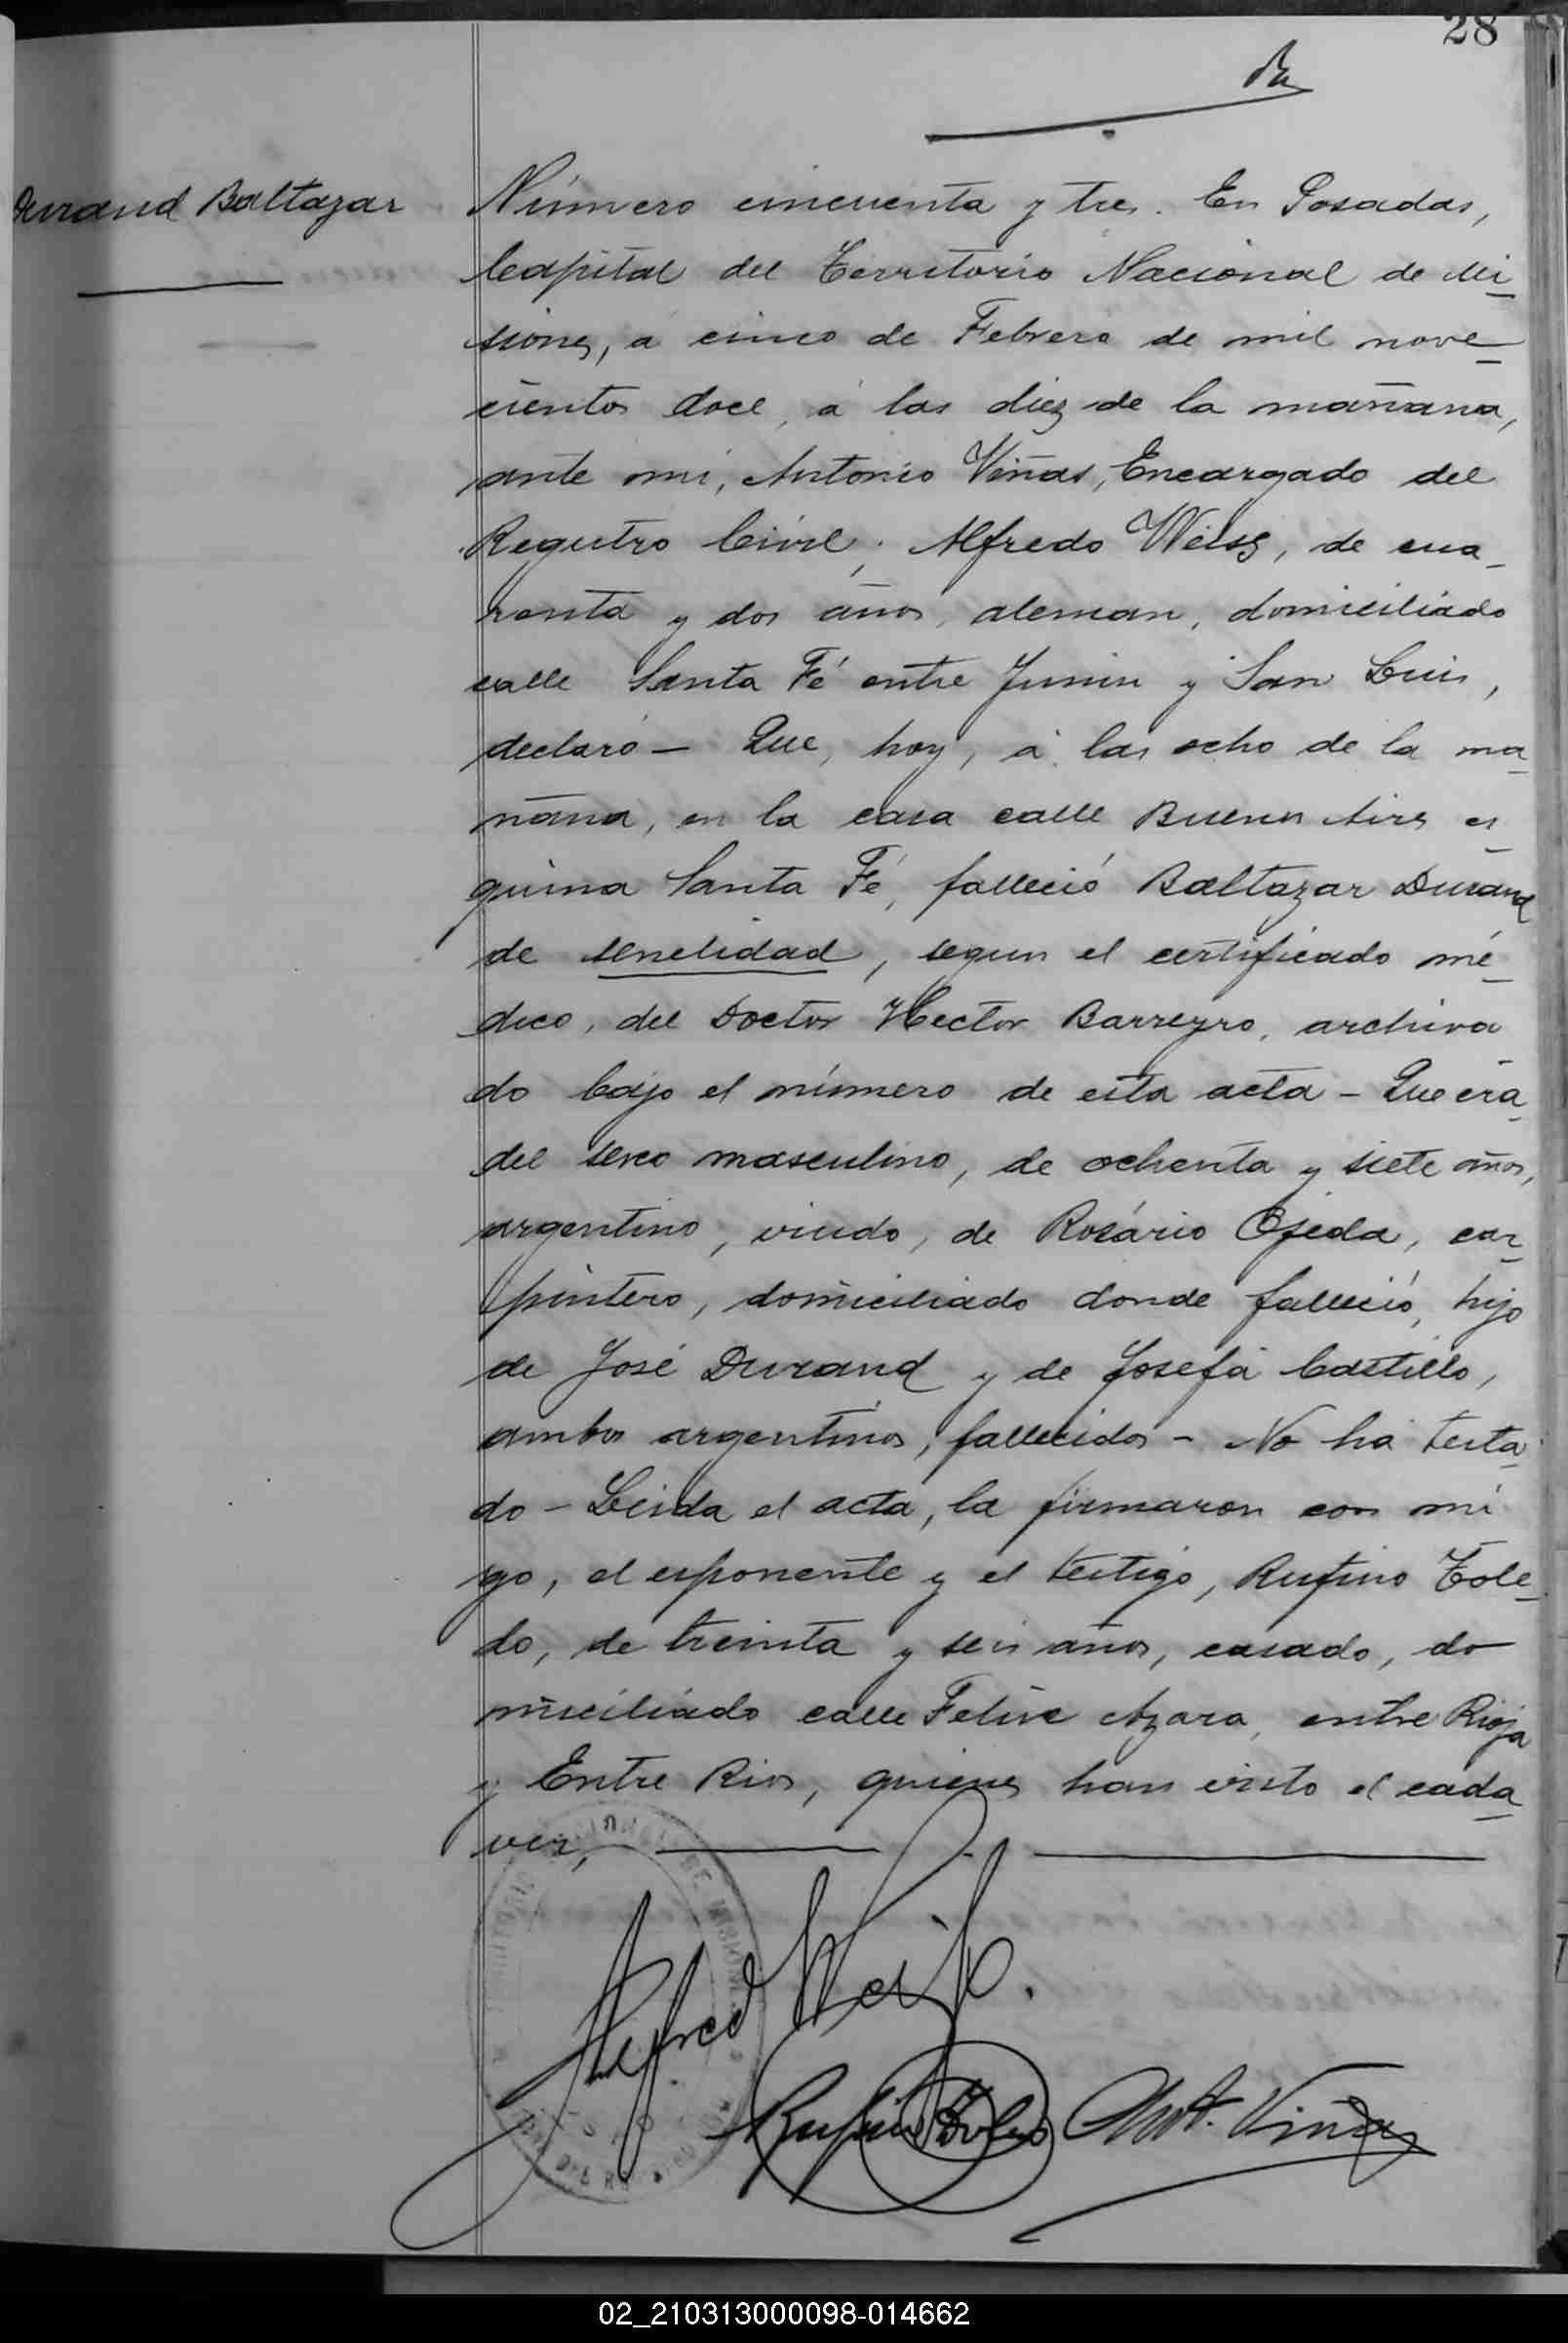 28
Durand Baltazar
Número cincuenta y tres. En Posadas,
Capital del Territorio Nacional de Mi
siones, á cinco de Febrero de mil nove
cientos doce, á las diez de la mañana,
ante mi, Antonio Viñas, Encargado del
Registro Civil; Alfredo Weiss, de cua
renta y dos años, aleman, domiciliado
calle Santa Fé entre Junin y San Luis,
declaró – Que, hoy, á las ocho de la ma
ñana, en la casa calle Buenos Aires es
quina Santa Fé, falleció Baltazar Durand
de senelidad, segun el certificado mé
dico, del Doctor Hector Barreyro, archiva
do bajo el número de esta acta – Que era
del sexo masculino, de ochenta y siete años,
argentino, viudo, de Rosário Ojeda, car
pintero, domiciliado donde falleció, hijo
de José Durand y de Josefa Castillo,
ambos argentinos, fallecidos – No ha testa
do – Leida el acta, la firmaron con mi
go, el esponente y el testigo, Rufino Tole
do, de treinta y seis años, casado, do
miciliado calle Felix Azara, entre Rioja
y Entre Rios, quienes han visto el cada
ver,
Alfred Weiß.
Rufino Toledo Ant. Viñas
02_210313000098-014662